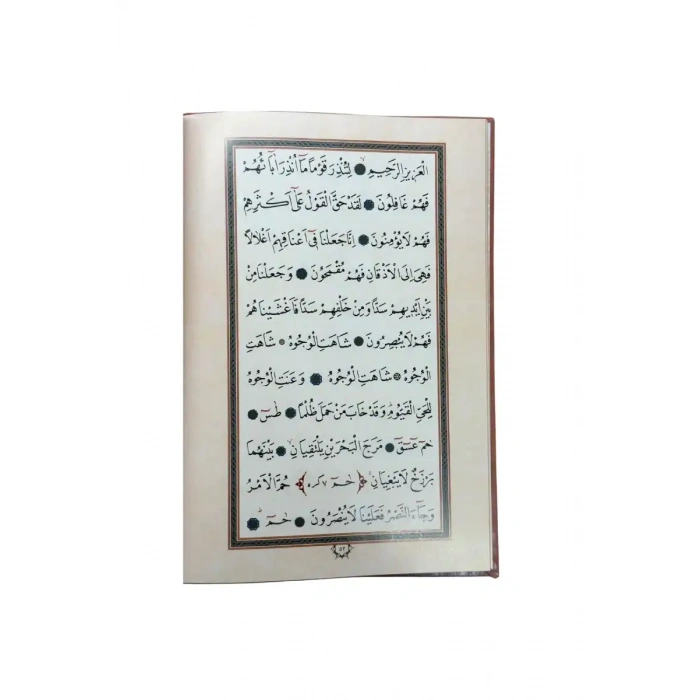 الْعَزِيزِ الرَّحِيمِ ● لِتُنْذِرَ قَوْمًا مَٓا اُنْذِرَ اٰبَٓاؤُ۬هُمْ
فَهُمْ غَافِلُونَ ● لَقَدْ حَقَّ الْقَوْلُ عَلٰٓى اَكْثَرِهِمْ
فَهُمْ لَا يُؤْمِنُونَ ● اِنَّا جَعَلْنَا فِٓى اَعْنَاقِهِمْ اَغْلَالًا
فَهِىَ اِلَى الْاَذْقَانِ فَهُمْ مُقْمَحُونَ ● وَجَعَلْنَا مِنْ
بَيْنِ اَيْدِيهِمْ سَدًّا وَمِنْ خَلْفِهِمْ سَدًّا فَاَغْشَيْنَاهُمْ
فَهُمْ لَا يُبْصِرُونَ ● شَاهَتِ الْوُجُوهُ ● شَاهَتِ
الْوُجُوهُ ● شَاهَتِ الْوُجُوهُ ● وَعَنَتِ الْوُجُوهُ
لِلْحَىِّ الْقَيُّومِ وَقَدْ خَابَ مَنْ حَمَلَ ظُلْمًا ● طٰسٓ ●
حٰمٓ عٓسٓقٓ ● مَرَجَ الْبَحْرَيْنِ يَلْتَقِيَانِ ● بَيْنَهُمَا
بَرْزَخٌ لَا يَبْغِيَانِ ﴿ حٰمٓ ٧ كره ﴾ حُمَّ الْاَمْرُ
وَجَٓاءَ النَّصْرُ فَعَلَيْنَا لَا يُنْصَرُونَ ● حٰمٓ ●
٥٢